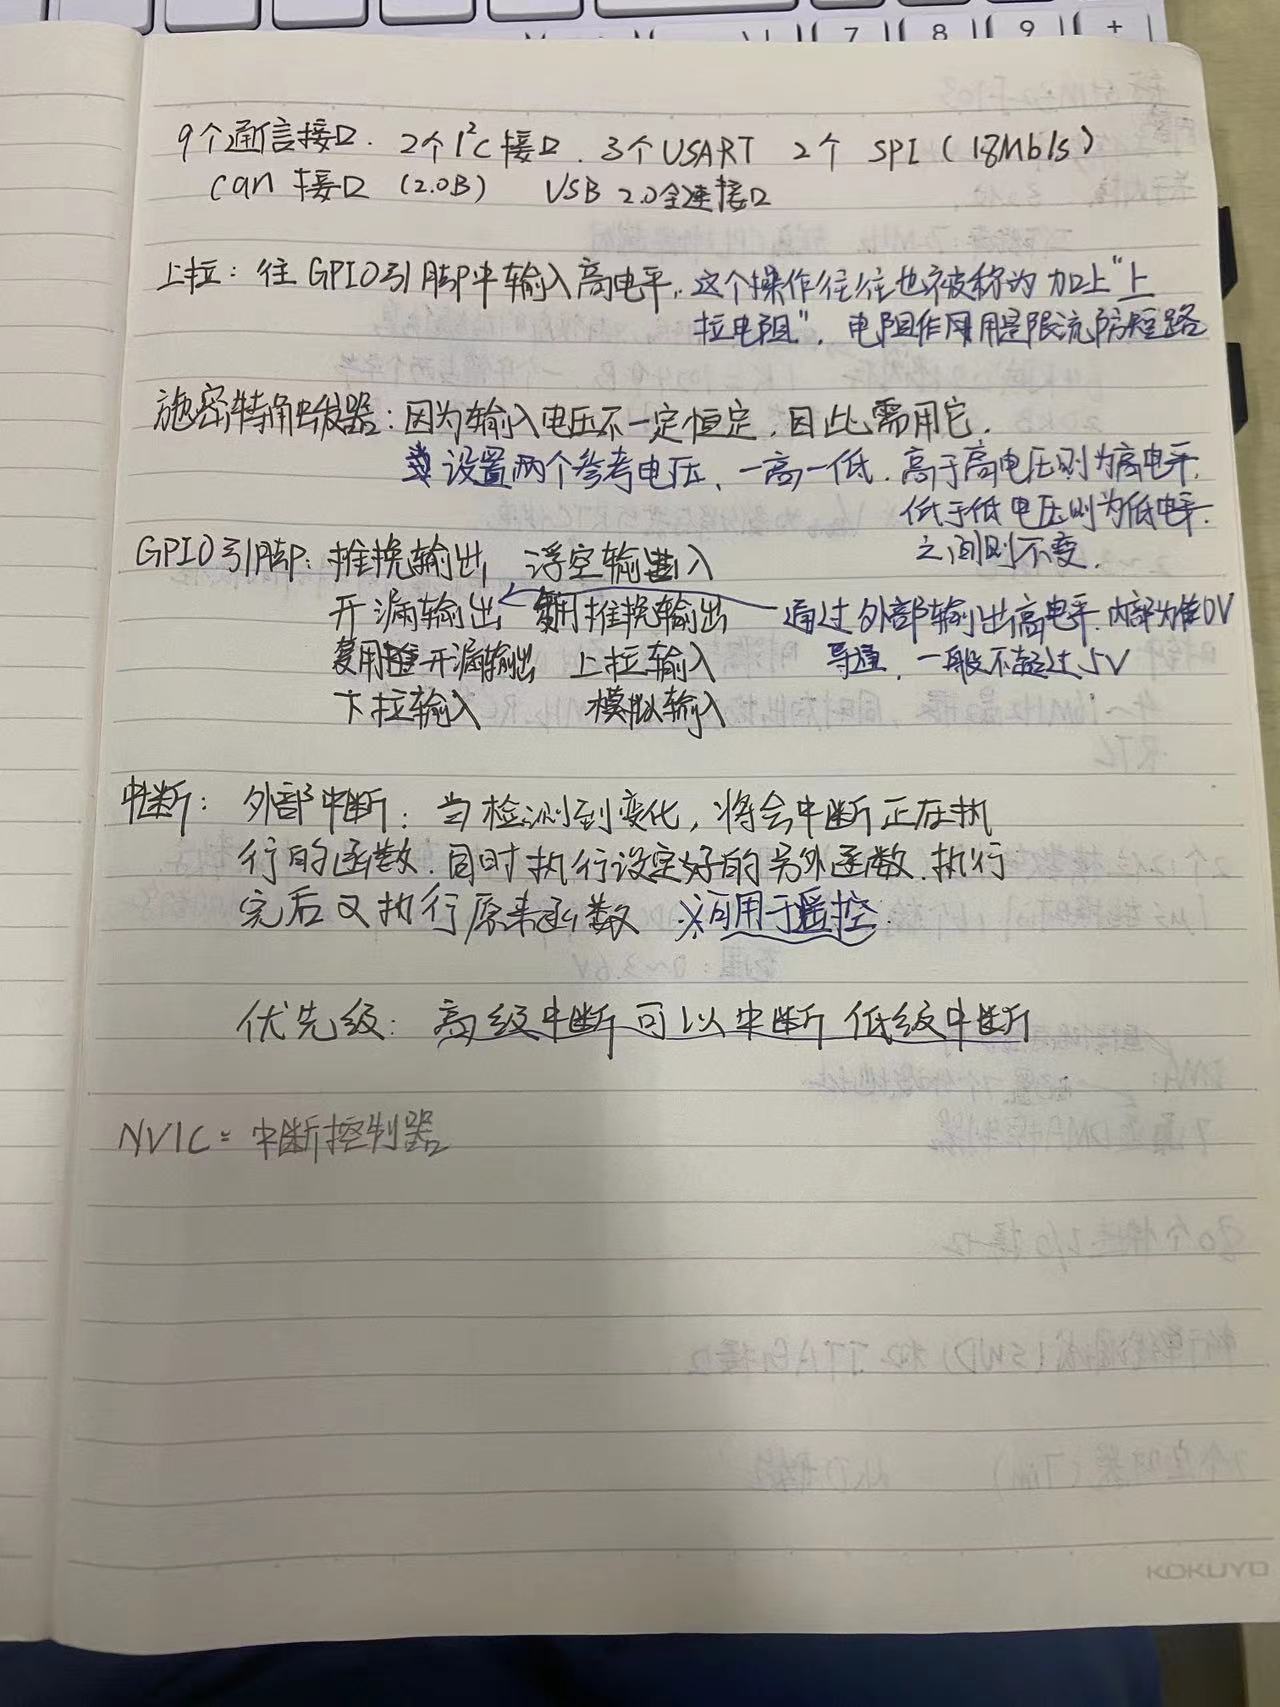 7 8 9 +
9个通信接口. 2个I²C接口. 3个USART 2个 SPI (18Mb/s)
can 接口 (2.0B) USB 2.0全速接口
上拉: 往GPIO引脚中输入高电平, 这个操作往往也被称为 加上"上
拉电阻", 电阻作用是限流防短路
施密特触发器: 因为输入电压不一定恒定, 因此需用它.
设置两个参考电压, 一高一低. 高于高电压则为高电平,
低于低电压则为低电平.
之间则不变.
GPIO引脚: 推挽输出 浮空输入
开漏输出 复用推挽输出 通过外部输出高电平. 内部为 0V
复用开漏输出 上拉输入 一般不超过5V
下拉输入 模拟输入
中断: 外部中断: 当检测到变化, 将会中断正在执
行的函数. 同时执行设定好的另外函数. 执行
完后又执行原来函数 ※可用于遥控.
优先级: 高级中断可以中断低级中断
NVIC = 中断控制器
KOKUYO